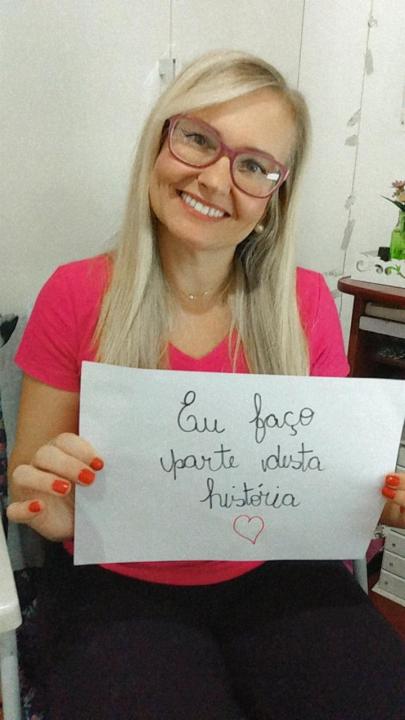 Eu faço
parte desta
história